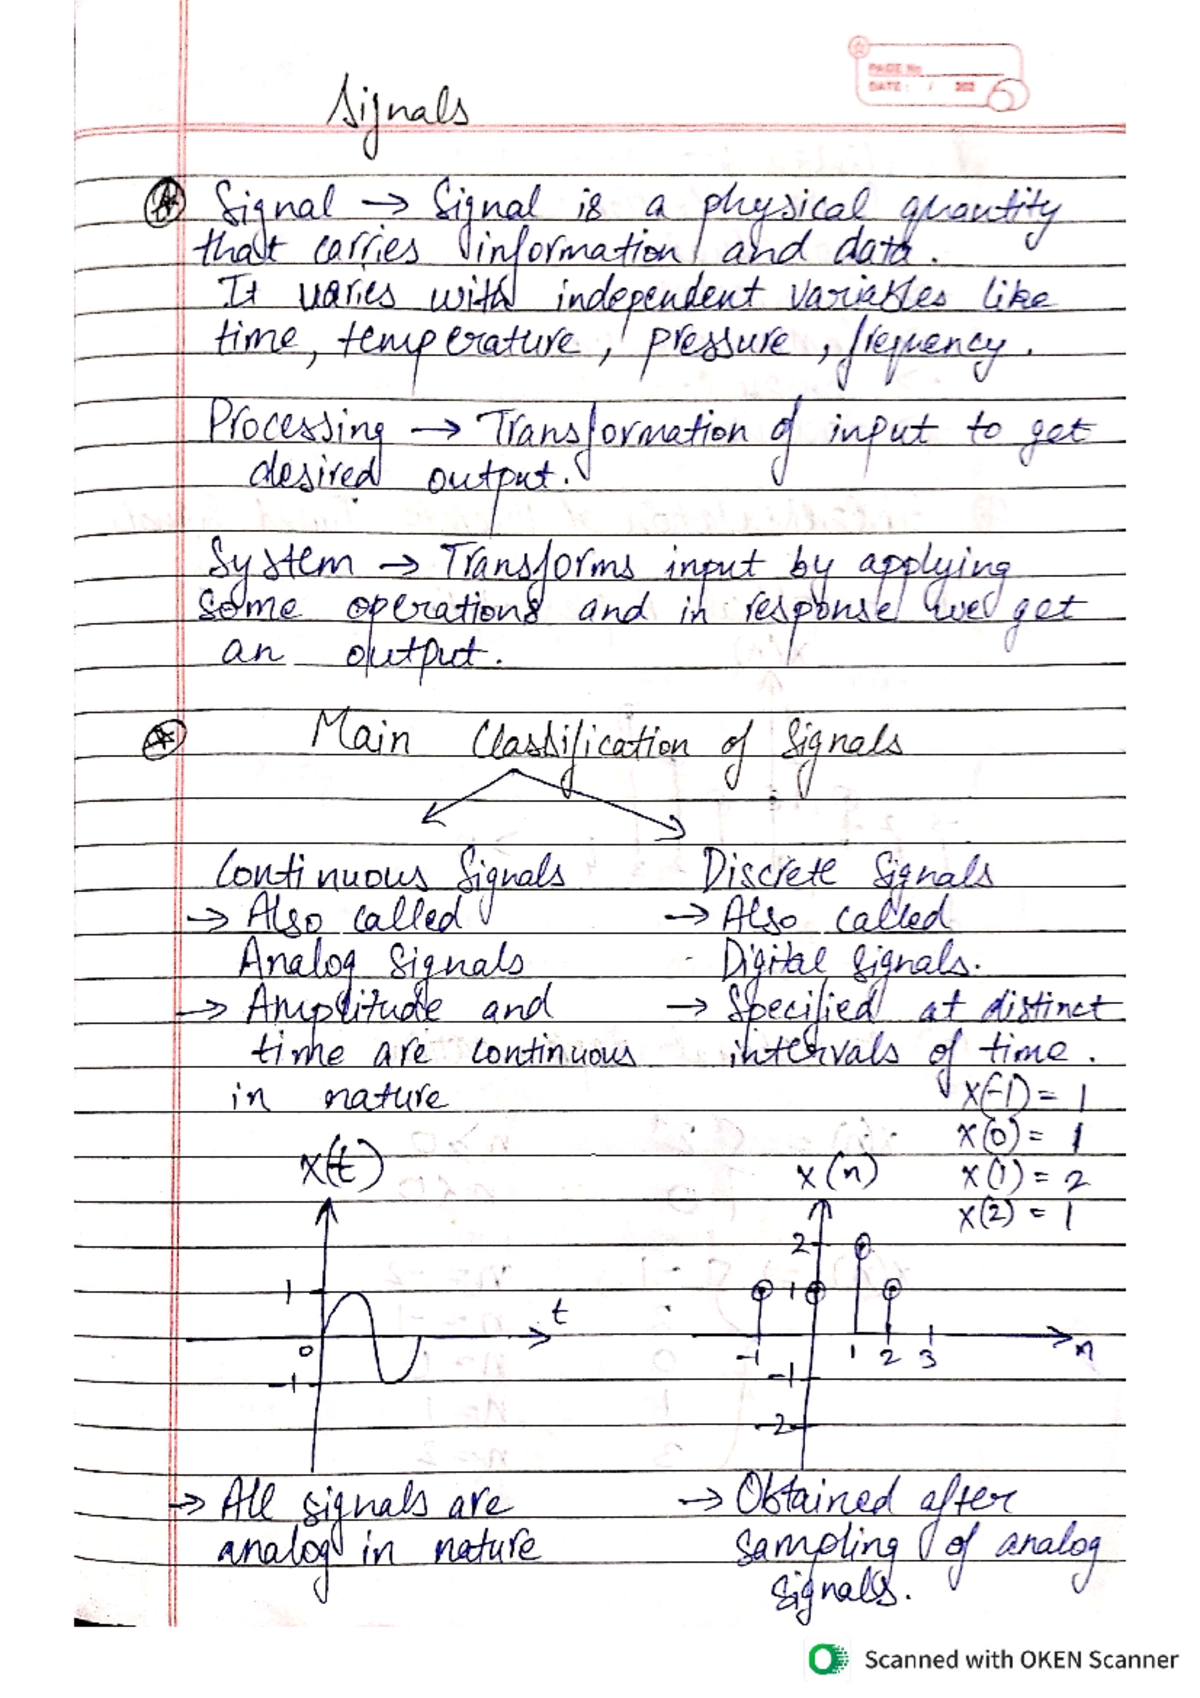 PAGE No
DATE: / 202
Signals
Signal → Signal is a physical quantity
that carries information and data.
It varies with independent variables like
time, temperature, pressure, frequency.
Processing → Transformation of input to get
desired output.
System → Transforms input by applying
some operations and in response we get
an output.
Main Classification of Signals
Continuous Signals
→ Also called
Analog Signals
→ Amplitude and
time are continuous
in nature
x(t)
1
0
-1
t
→ All signals are
analog in nature
Discrete Signals
→ Also called
Digital Signals.
→ Specified at distinct
intervals of time.
x(-1) = 1
x(0) = 1
x(1) = 2
x(2) = 1
x(n)
2
1
-1 1 2 3 n
-1
-2
→ Obtained after
sampling of analog
signals.
Scanned with OKEN Scanner